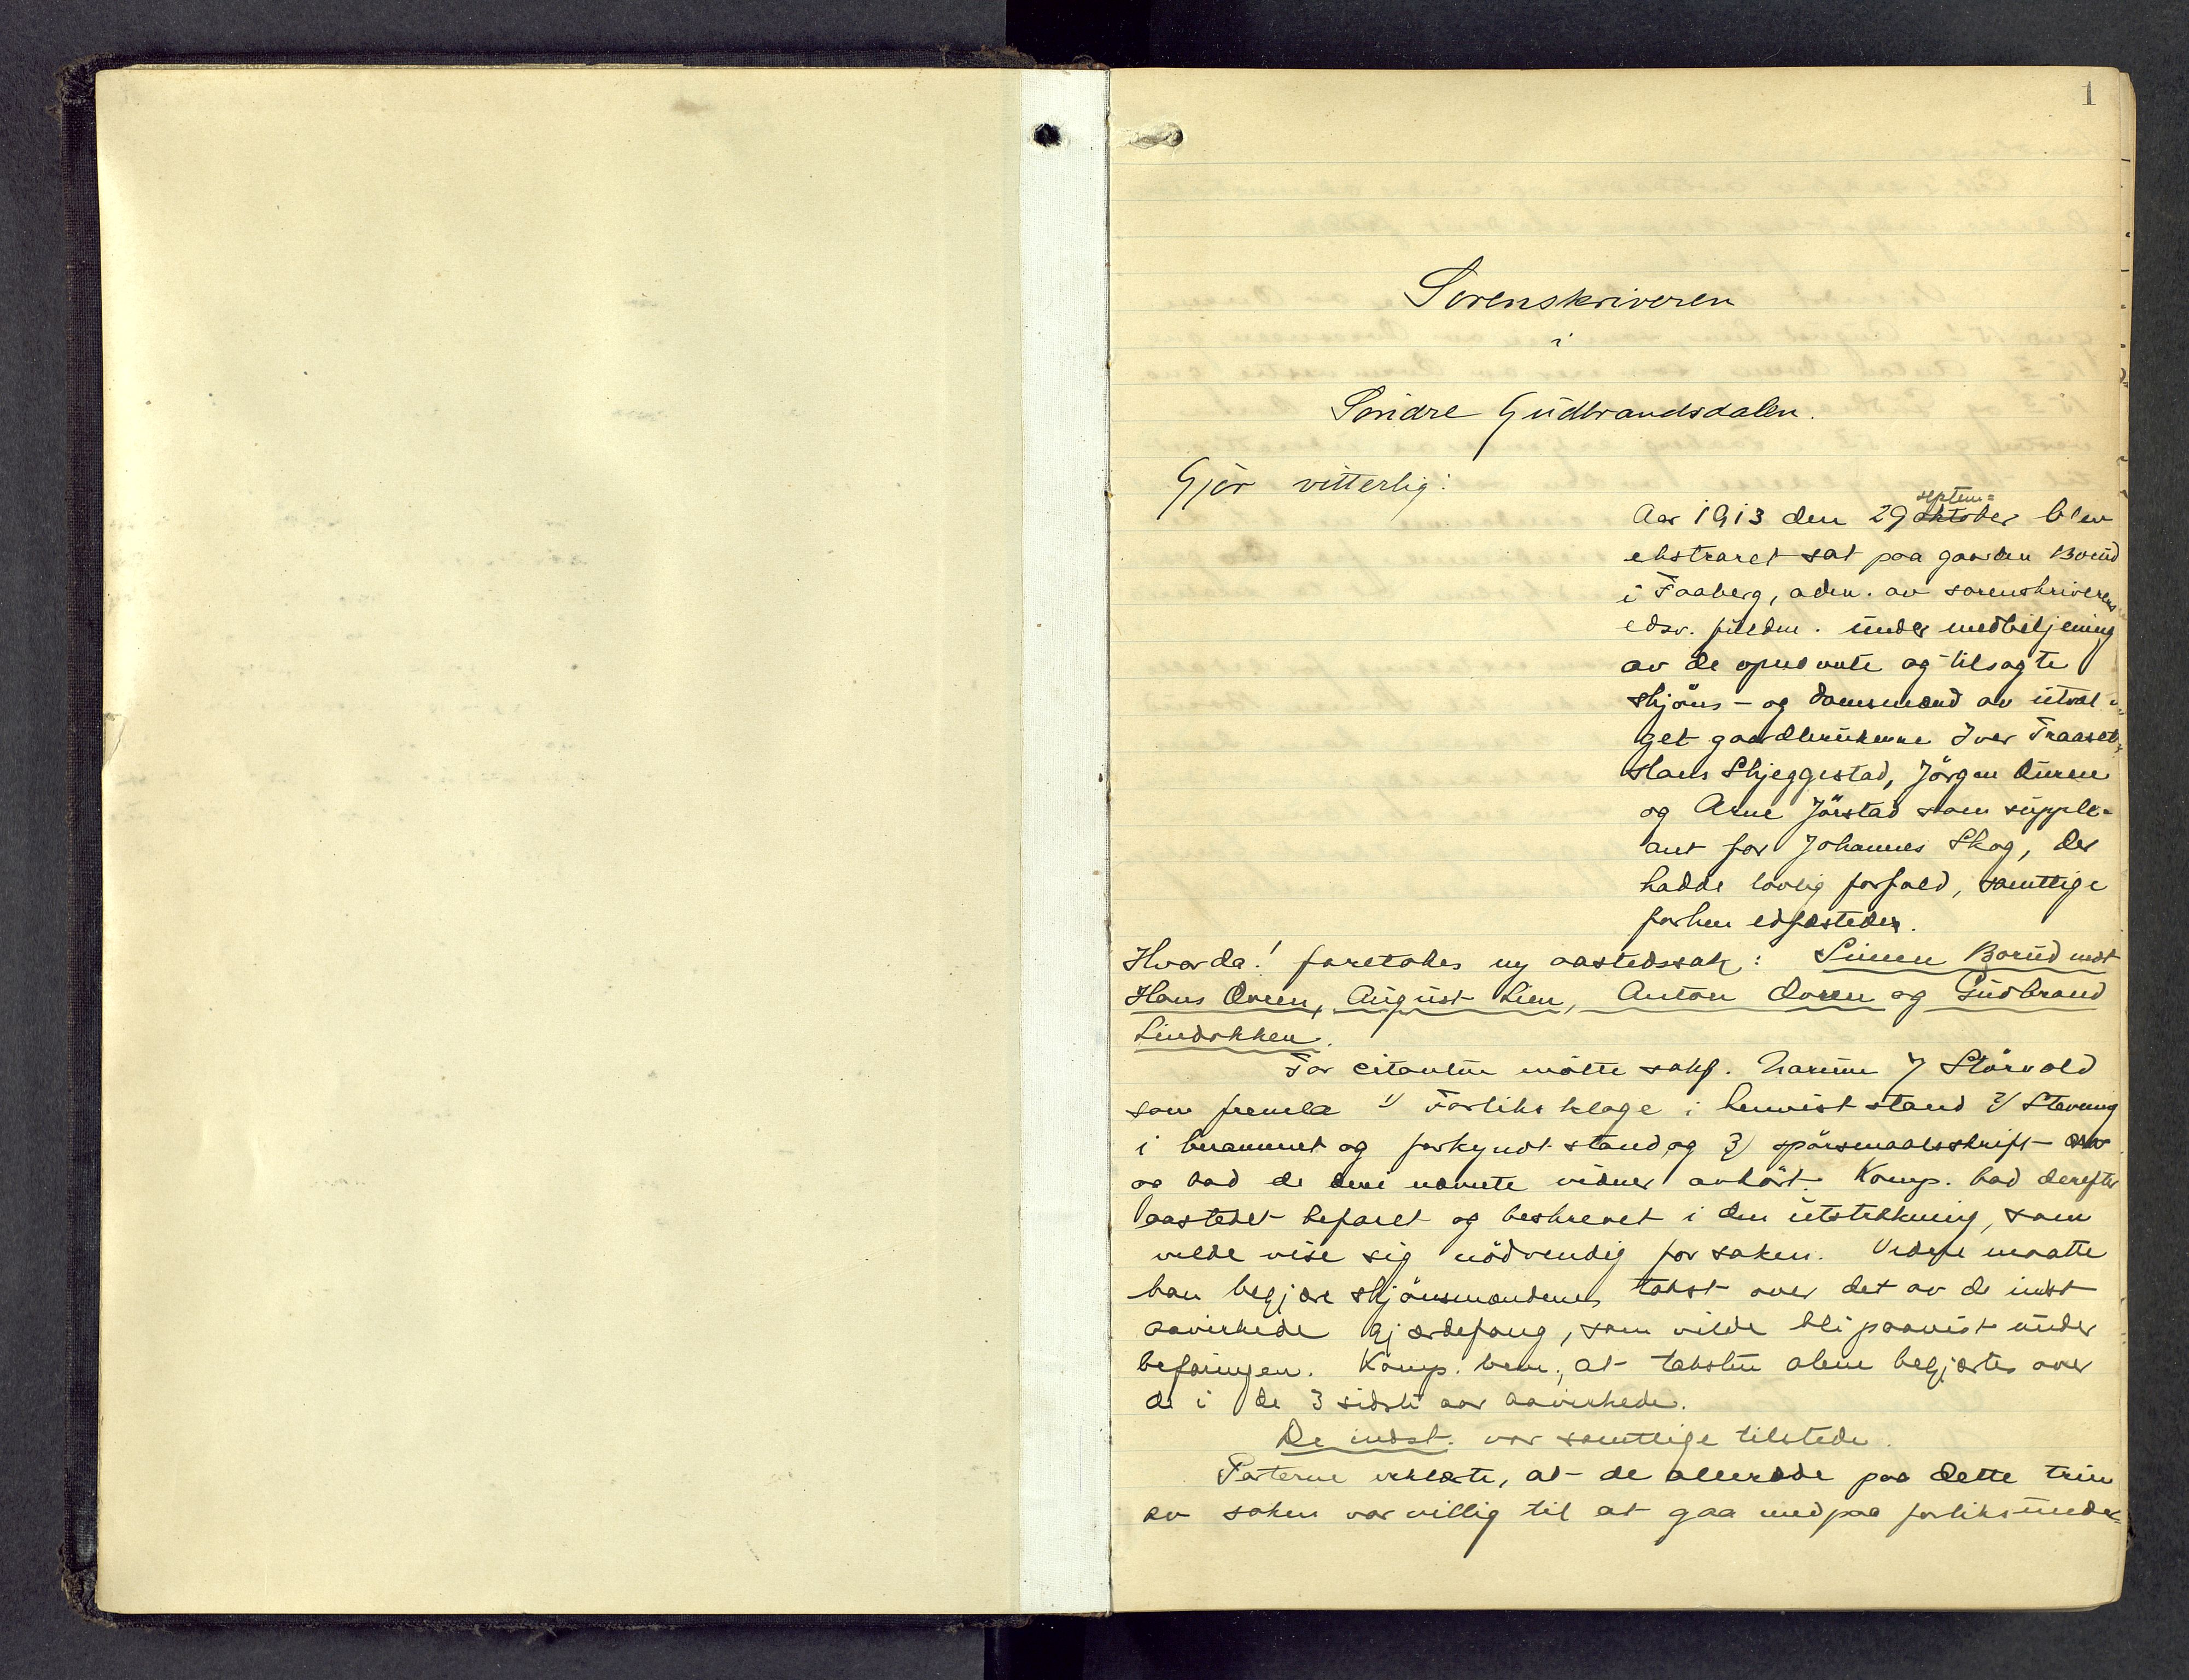 1
Sorenskriveren
i
Söndre Gudbrandsdalen.
Gjör vitterlig:
Aar 1913 den 29 septem= oktober blev
ekstraret sat paa gaarden Borud
i Faaberg, adm. av sorenskriverens
edsv. fuldm. under medbetjening
av de opnævnte og tilsagte
skjöns- og domsmænd av utval-
get gaardbrukerne Iver Traaset,
Hans Skjeggestad, Jörgen Suren
og Arne Jörstad som supple-
ant for Johannes Skog, der
hadde lovlig forfald, samtlige
forhen edfæstede.
Hvorda! foretokes ny aastedssak: Simen Borud mot
Hans Overn, August Lien, Anton Overn og Gudbrand
Lindokken.
For citanten mötte sakf. Störvold
som fremla 1/ Forliksklage i henvist stand 2/ Stevning
i berammet og forkyndt stand og 3/ spörsmaalsskrift
og bad de deri nævnte vidner avhört. Komp. bad derefter
aastedet befaret og beskrevet i den utstrekkning, som
vilde vise sig nödvendig for saken. Videre maatte
han begjære skjönsmændenes takst over det av de indst
aavirkede gjærdefang, som vilde bli paavist under
befaringen. Komp. bem., at taksten alene begjærtes over
de i de 3 sidste aar aavirkede.
De indst. var samtlige tilstede.
Parterne erklærte, at de allerede paa dette trin
av saken var villig til at gaa med paa forliksunder=